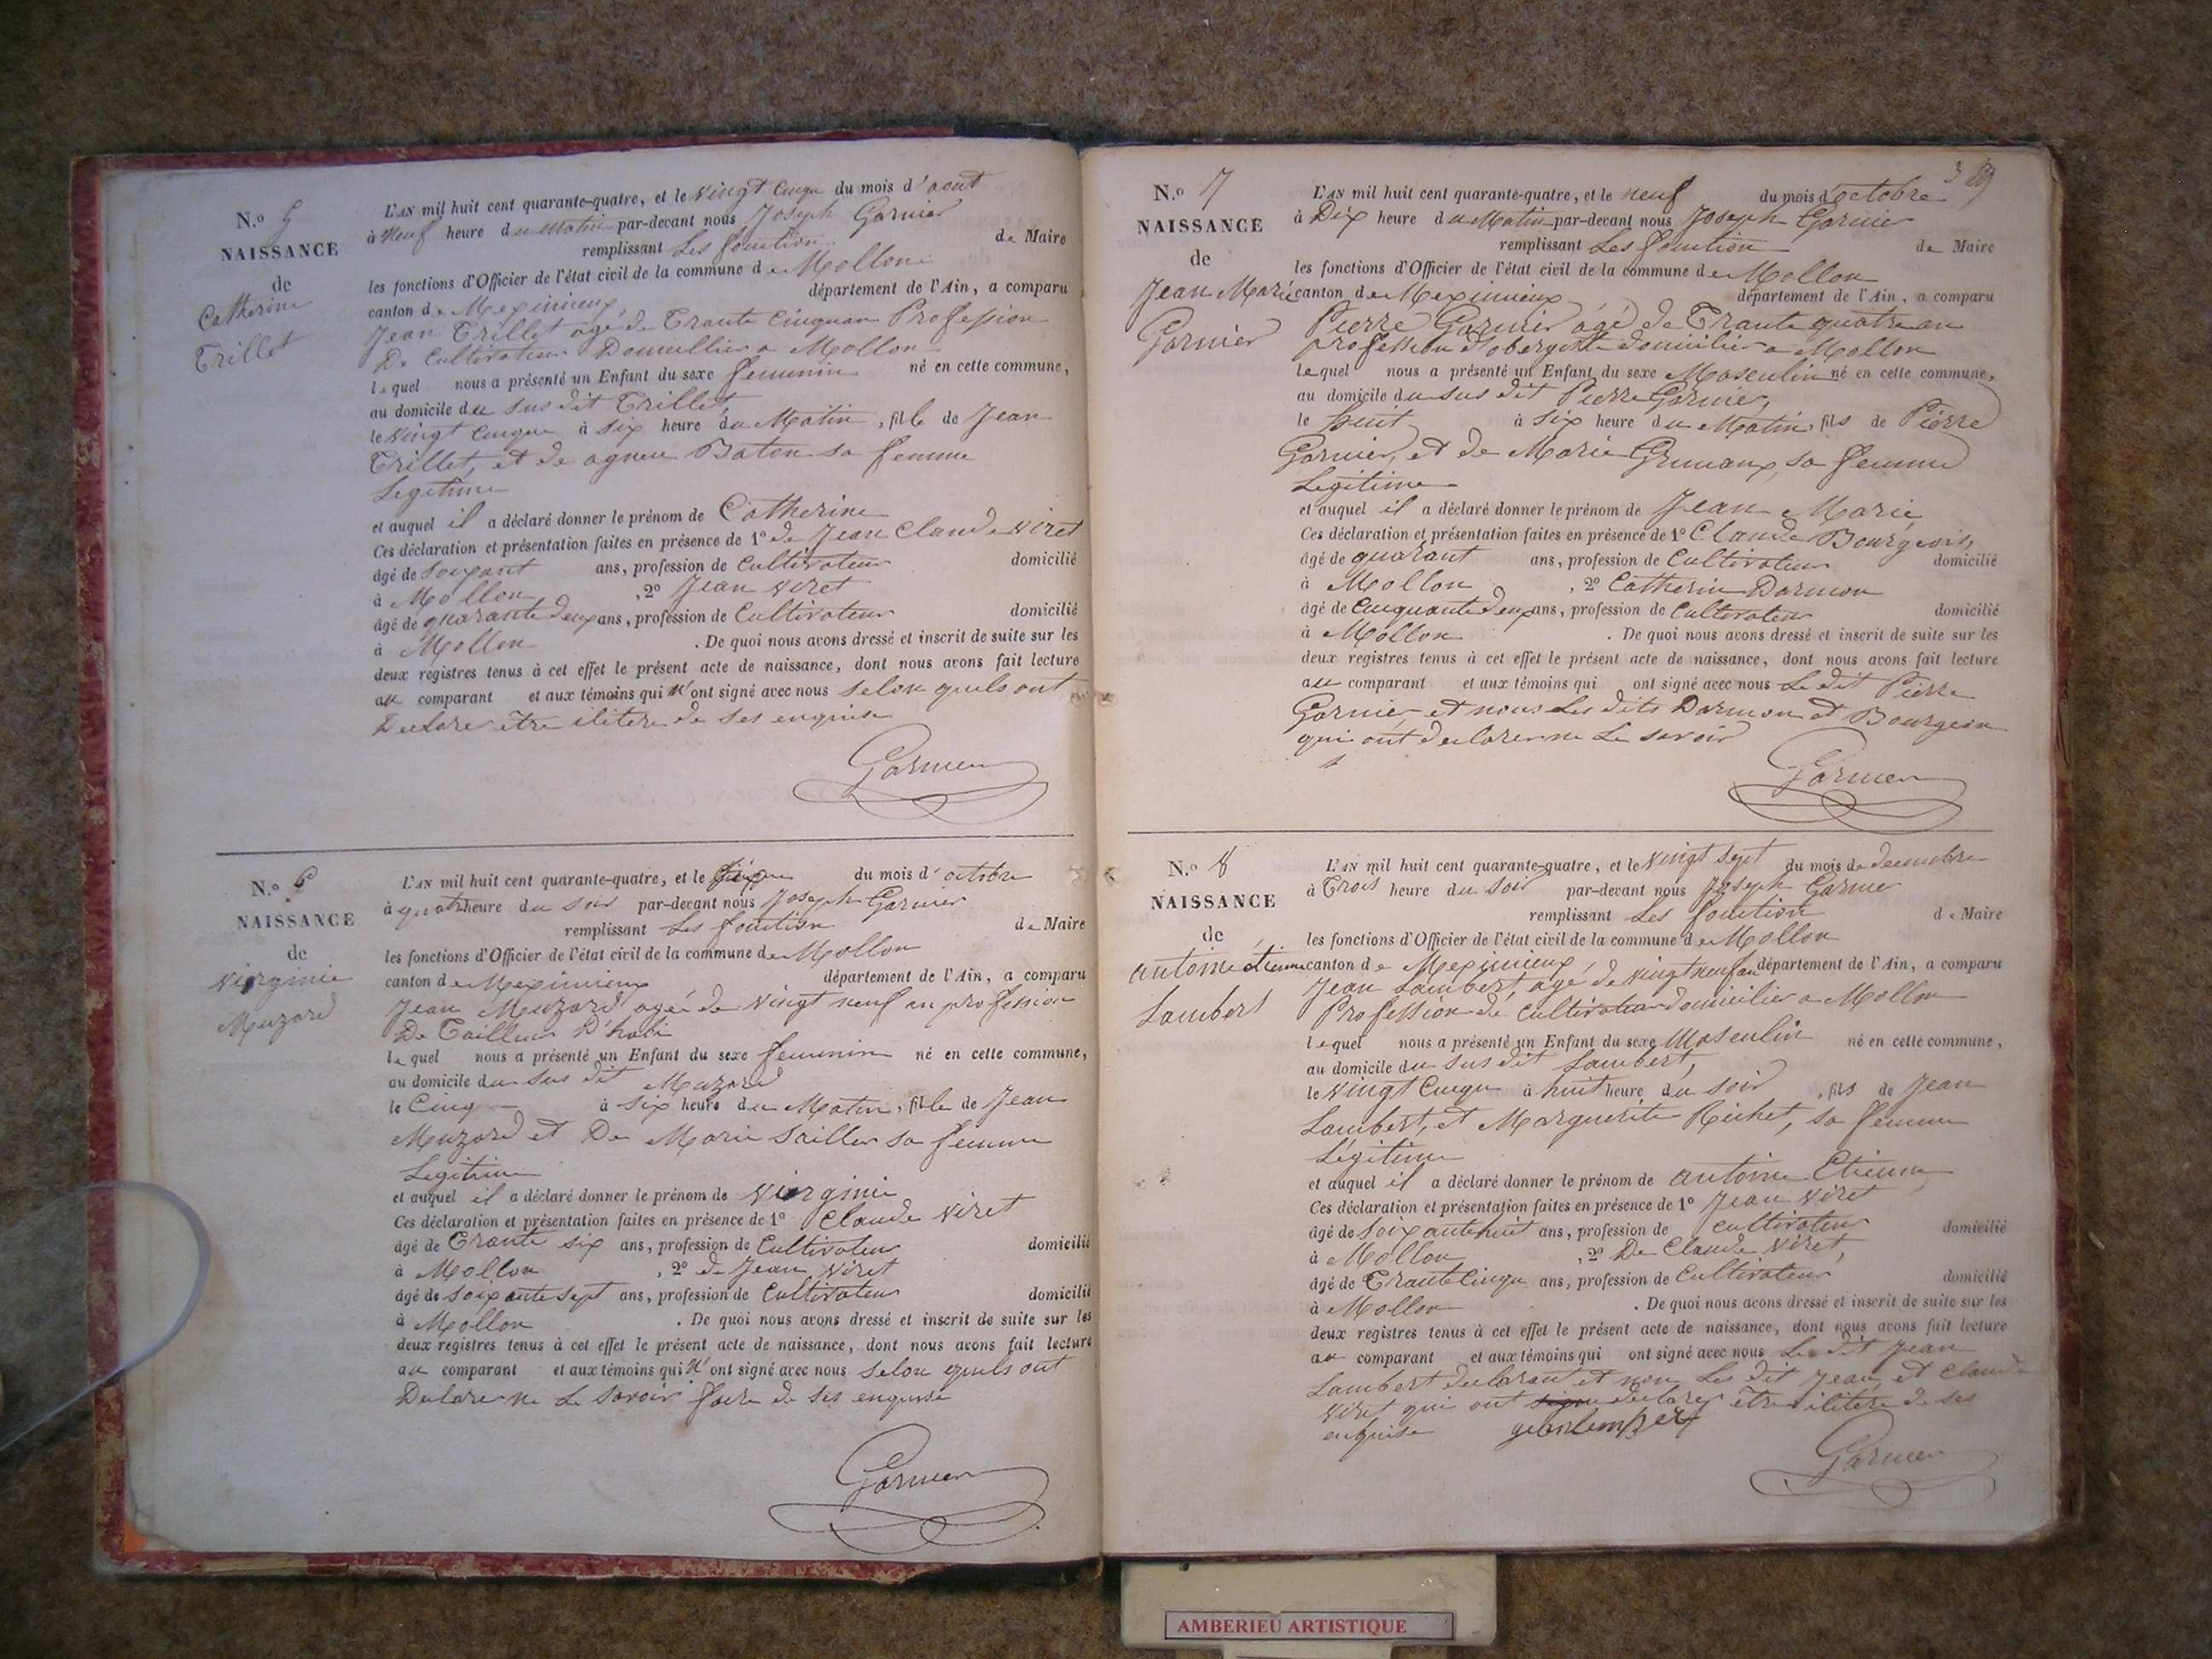 N.o 5
NAISSANCE
de
Catherine
Trillet
L'AN mil huit cent quarante-quatre, et le vingt cinqu du mois d'aout
à neuf heure du matin par-devant nous Joseph Garnier
remplissant Les fonction de Maire
les fonctions d'Officier de l'état civil de la commune de Mollon
canton de Meximieux département de l'Ain, a comparu
Jean Trillet agé de Trante Cinquan Profession
De Cultivateur Domicillier a Mollon
lequel nous a présenté un Enfant du sexe feminin né en cette commune,
au domicile du sus dit Trillet,
le vingt cinque à six heure du Matin, fille de Jean
Trillet, et de agneu Baton sa femme
Legitime
et auquel il a déclaré donner le prénom de Catherine
Ces déclaration et présentation faites en présence de 1º de Jean Claude Viret
âgé de soixant ans, profession de Cultivateur domicilié
à Mollon, 2º Jean Viret
âgé de quarante deux ans, profession de Cultivateur domicilié
à Mollon. De quoi nous avons dressé et inscrit de suite sur les
deux registres tenus à cet effet le présent acte de naissance, dont nous avons fait lecture
au comparant et aux témoins qui n'ont signé avec nous selon quels ont
Declare etre ilitere de ses enquise
Garnier
N.o 6
NAISSANCE
de
Virginie
Muzard
L'AN mil huit cent quarante-quatre, et le du mois d'octobre
à quatr heure du soir par-devant nous Joseph Garnier
remplissant Les fonction de Maire
les fonctions d'Officier de l'état civil de la commune de Mollon
canton de Meximieux département de l'Ain, a comparu
Jean Muzard agé de vingt neuf an profession
De Tailleur D'habi
lequel nous a présenté un Enfant du sexe feminin né en cette commune,
au domicile du sus dit Muzard
le Cinq à six heure du Matin, fille de Jean
Muzard et De Marie Sailler sa femme
Legitime
et auquel il a déclaré donner le prénom de Virginie
Ces déclaration et présentation faites en présence de 1º Claude Viret
âgé de Trante six ans, profession de Cultivateur domicilié
à Mollon, 2º de Jean Viret
âgé de soixante sept ans, profession de Cultivateur domicilié
à Mollon. De quoi nous avons dressé et inscrit de suite sur les
deux registres tenus à cet effet le présent acte de naissance, dont nous avons fait lecture
au comparant et aux témoins qui n'ont signé avec nous selon quels ont
Delare ne Le savoir faire de ses enquise
Garnier
389
N.o 7
NAISSANCE
de
Jean Marie
Garnier
L'AN mil huit cent quarante-quatre, et le neuf du mois d'octobre
à Dix heure du Matin par-devant nous Joseph Garnier
remplissant Les fonction de Maire
les fonctions d'Officier de l'état civil de la commune de Mollon
canton de Meximieux département de l'Ain, a comparu
Pierre Garnier agé de Trante quatre an
profession d'obergiste domicilier a Mollon
Lequel nous a présenté un Enfant du sexe Masculin né en cette commune,
au domicile du sus dit Pierre Garnier,
le huit à six heure du Matin, fils de Pierre
Garnier, et de Marie sa femme
Legitime
et auquel il a déclaré donner le prénom de Jean Marie
Ces déclaration et présentation faites en présence de 1º Claude Bourgeois,
âgé de quarant ans, profession de Cultivateur domicilié
à Mollon, 2º Catherin Darmon
âgé de Cinquante deux ans, profession de Cultivateur domicilié
à Mollon. De quoi nous avons dressé et inscrit de suite sur les
deux registres tenus à cet effet le présent acte de naissance, dont nous avons fait lecture
au comparant et aux témoins qui ont signé avec nous Le dit Pierre
Garnier, et nous Les dits Darmon et Bourgeon
qui ont declarer ne Le savoir
Garnier
N.o 8
NAISSANCE
de
antoine etienne
Lambert
L'AN mil huit cent quarante-quatre, et le vingt sept du mois de decembre
à Trois heure du soir par-devant nous Joseph Garnier
remplissant Les fonction de Maire
les fonctions d'Officier de l'état civil de la commune de Mollon
canton de Meximieux, département de l'Ain, a comparu
Jean Lambert, agé de vingt neuf an
Profession de Cultivateur domicilier a Mollon
lequel nous a présenté un Enfant du sexe Masculin né en cette commune,
au domicile du sus dit Lambert,
le vingt Cinqu à huit heure du soir, fils de Jean
Lambert, et Marguerite Richet, sa femme
Légitime
et auquel il a déclaré donner le prénom de antoine Etienne
Ces déclaration et présentation faites en présence de 1º Jean Viret
âgé de soixantehuit ans, profession de cultivateur domicilié
à Mollon, 2º De Claude Viret,
âgé de Trante Cinqu ans, profession de Cultivateur domicilié
à Mollon. De quoi nous avons dressé et inscrit de suite sur les
deux registres tenus à cet effet le présent acte de naissance, dont nous avons fait lecture
au comparant et aux témoins qui ont signé avec nous Le dit Jean
Lambert declarant et non Les dit Jean et Claude
Viret qui ont declarer etre ilitere de ses
enquise
Garnier
AMBERIEU ARTISTIQUE